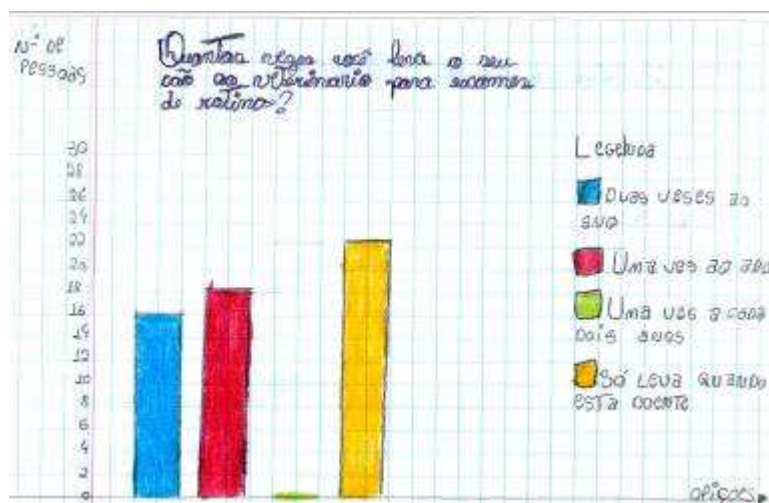 Nº de
Pessoas
Quantas vezes você leva o seu
cão ao veterinario para exames
de rotina?
30
28
26
24
22
20
18
16
14
12
10
8
6
4
2
0
Legenda
Duas veses ao
ano
Uma ves ao ano
Uma ves a cada
dois anos
Só leva quando
esta doente
opições